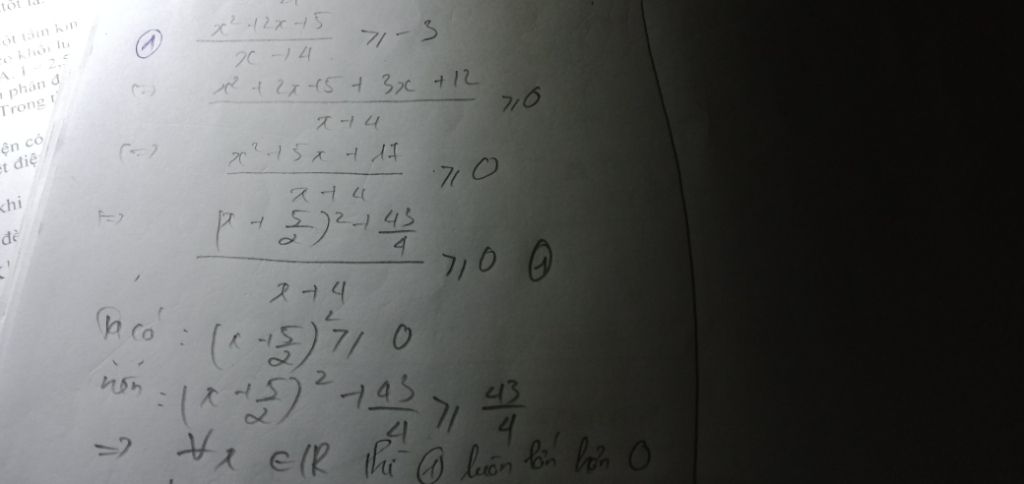 tốt là.
ột tấm kim
A. 1 2.5
phần đ
Trong t
ện có
ột điệ
khi
đề
① \frac{x² + 2x + 5}{x + 4} ≥ -3
(=) \frac{x² + 2x + 5 + 3x + 12}{x + 4} ≥ 0
(=) \frac{x² + 5x + 17}{x + 4} ≥ 0
(=) \frac{(x + \frac{5}{2})² + \frac{43}{4}}{x + 4} ≥ 0 ①
Ta có : (x + \frac{5}{2})² ≥ 0
nên : (x + \frac{5}{2})² + \frac{43}{4} ≥ \frac{43}{4}
=> ∀x ∈ ℝ thì ① luôn lớn hơn 0